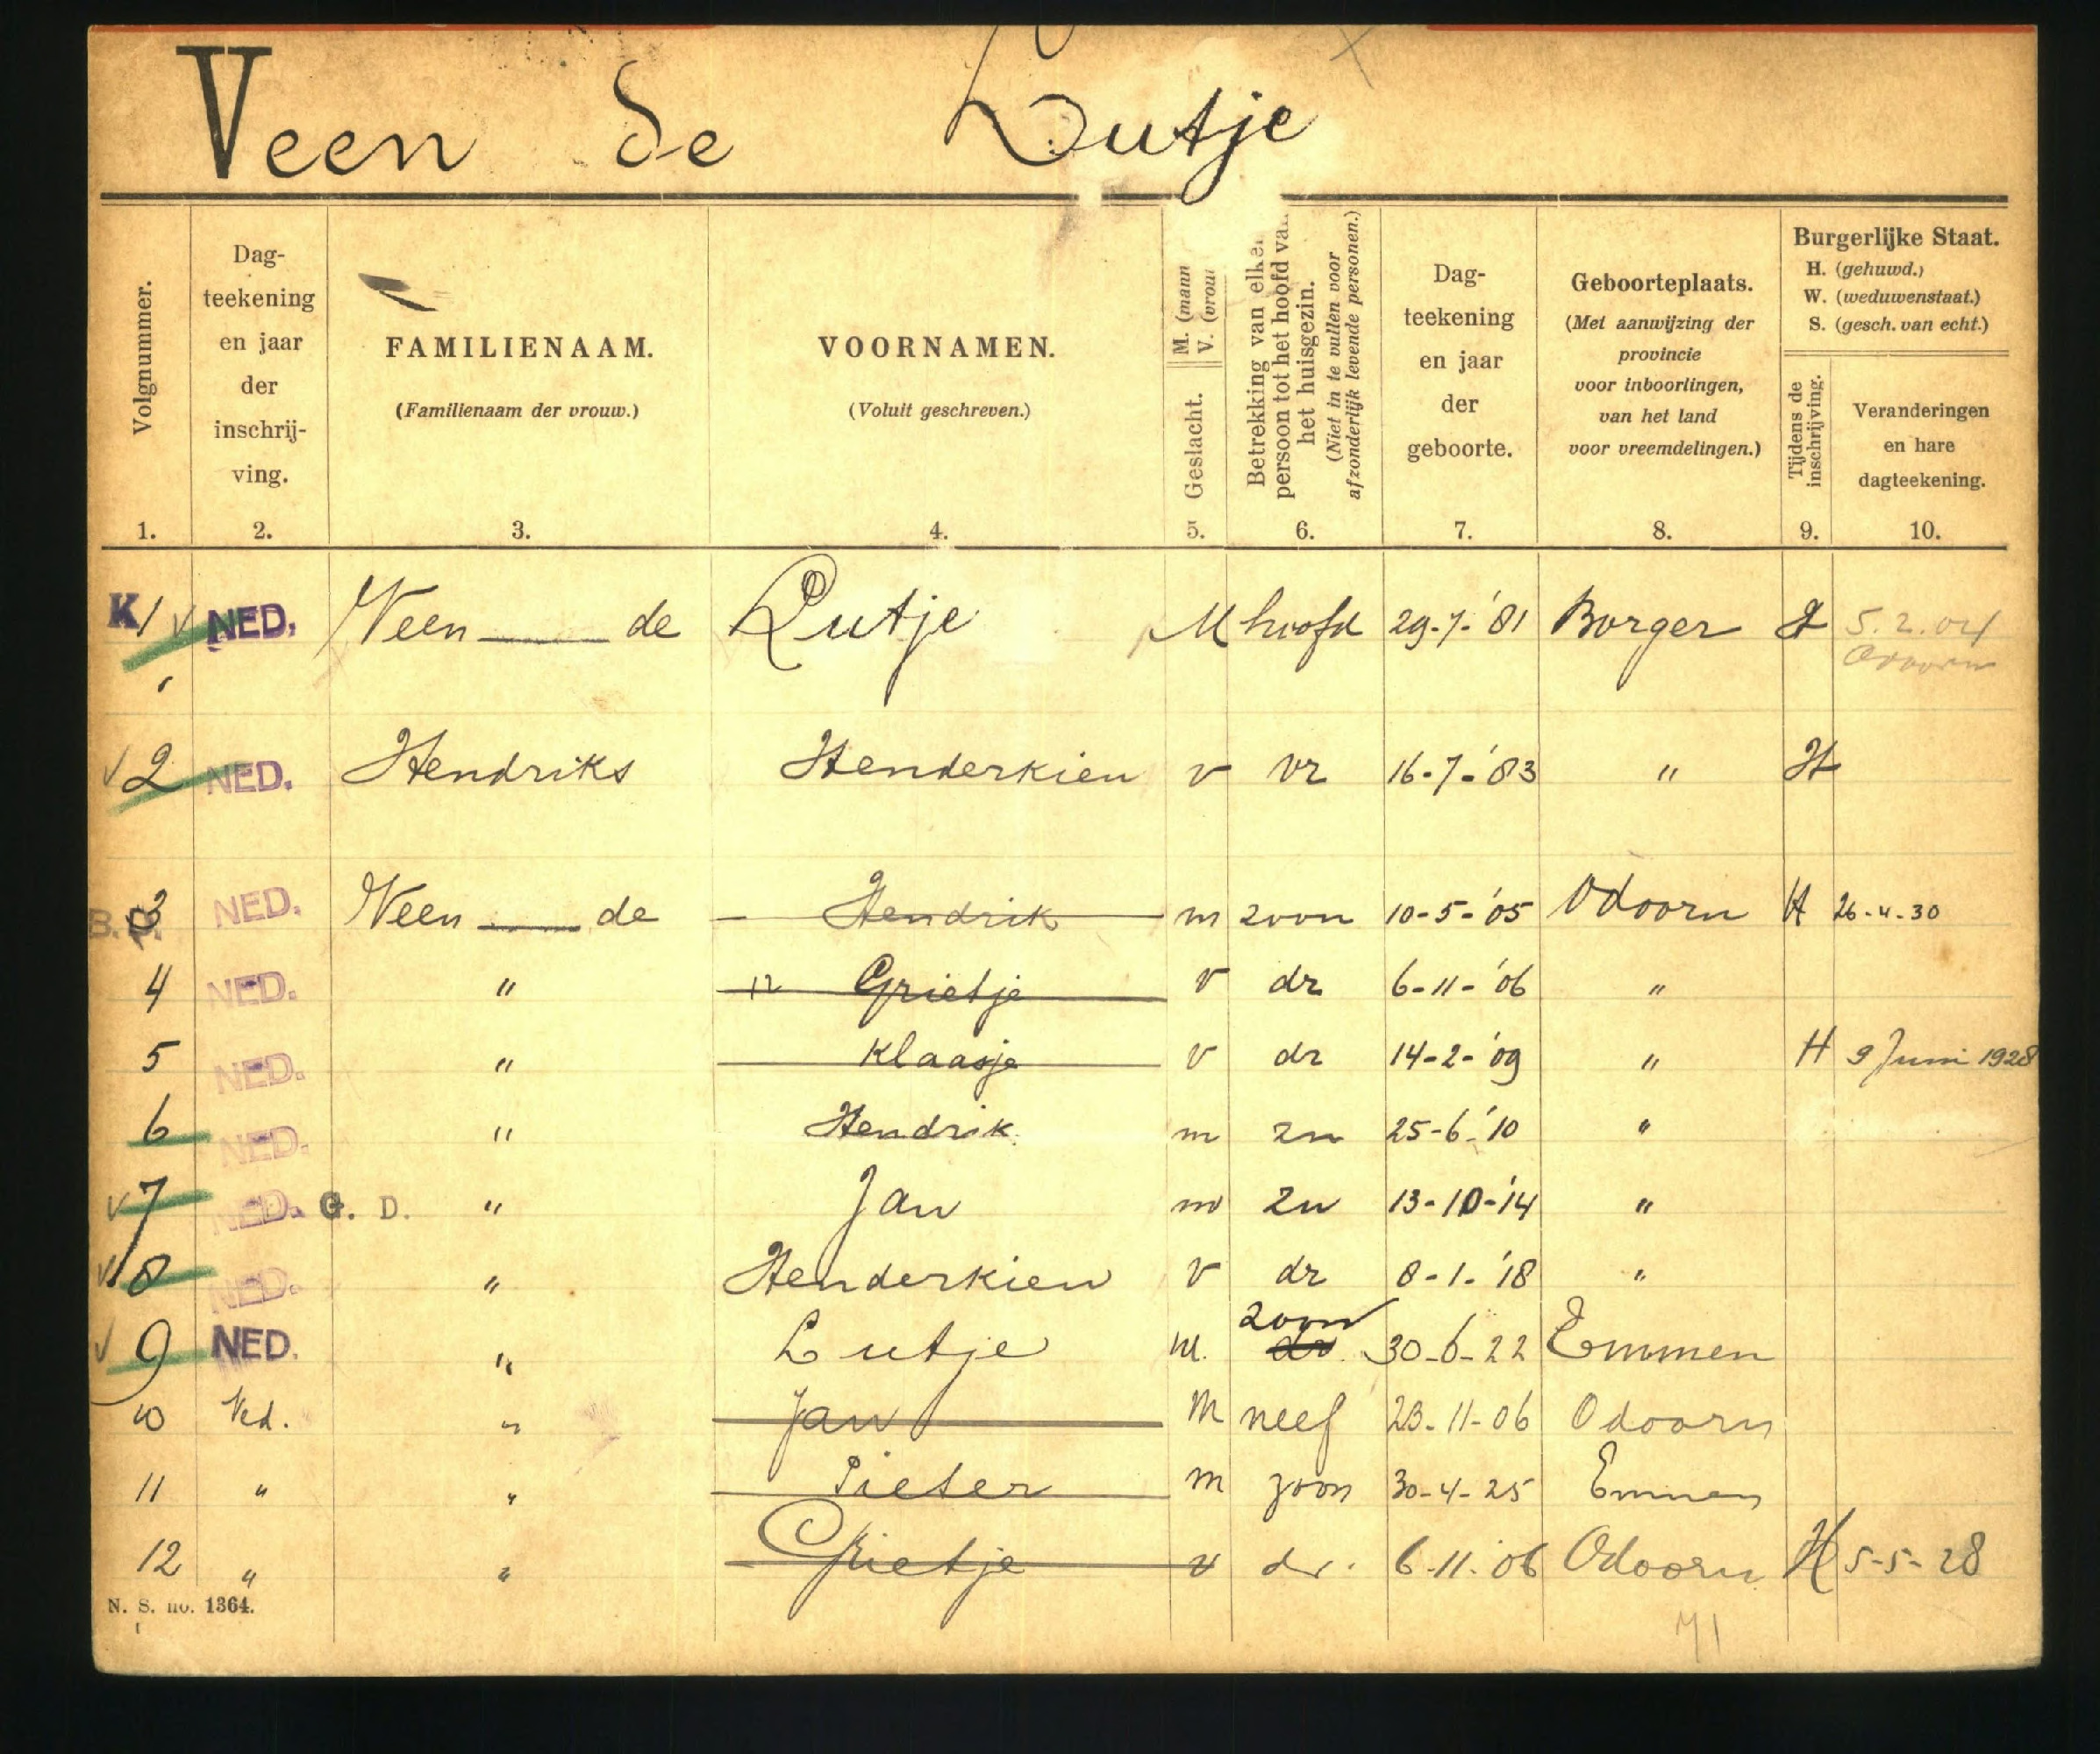 Veen de Lutje
Volgnummer.
Dag-
teekening
en jaar
der
inschrij-
ving.
FAMILIENAAM.
(Familienaam der vrouw.)
VOORNAMEN.
(Voluit geschreven.)
Geslacht.
M. (mann
V. (vrouw
Betrekking van elken
persoon tot het hoofd van
het huisgezin.
(Niet in te vullen voor
afzonderlijk levende personen.)
Dag-
teekening
en jaar
der
geboorte.
Geboorteplaats.
(Met aanwijzing der
provincie
voor inboorlingen,
van het land
voor vreemdelingen.)
Burgerlijke Staat.
H. (gehuwd.)
W. (weduwenstaat.)
S. (gesch. van echt.)
Tijdens de
inschrijving.
Veranderingen
en hare
dagteekening.
1. 2. 3. 4. 5. 6. 7. 8. 9. 10.
K 1 NED. Veen de Lutje M hoofd 29-7-'81 Borger H 5.2.04
Odoorn
2 NED. Hendriks Henderkien v vr 16-7-'83 " H
B.D. 3 NED. Veen de Hendrik m zoon 10-5-'05 Odoorn H 26-4-30
4 NED. " Grietje v dr 6-11-'06 "
5 NED. " Klaasje v dr 14-2-'09 " H 9 Juni 1928
6 NED. " Hendrik m zn 25-6-'10 "
7 NED. G. D. " Jan m zn 13-10-'14 "
8 NED. " Henderkien v dr 8-1-'18 "
zoon
9 NED. " Lutje M. dr. 30-6-22 Emmen
10 Ned. " Jan M neef 23-11-06 Odoorn
11 " " Pieter m zoon 30-4-25 Emmen
12 " " Grietje v dr. 6-11-06 Odoorn H 5-5-28
N. S. no. 1364.
71